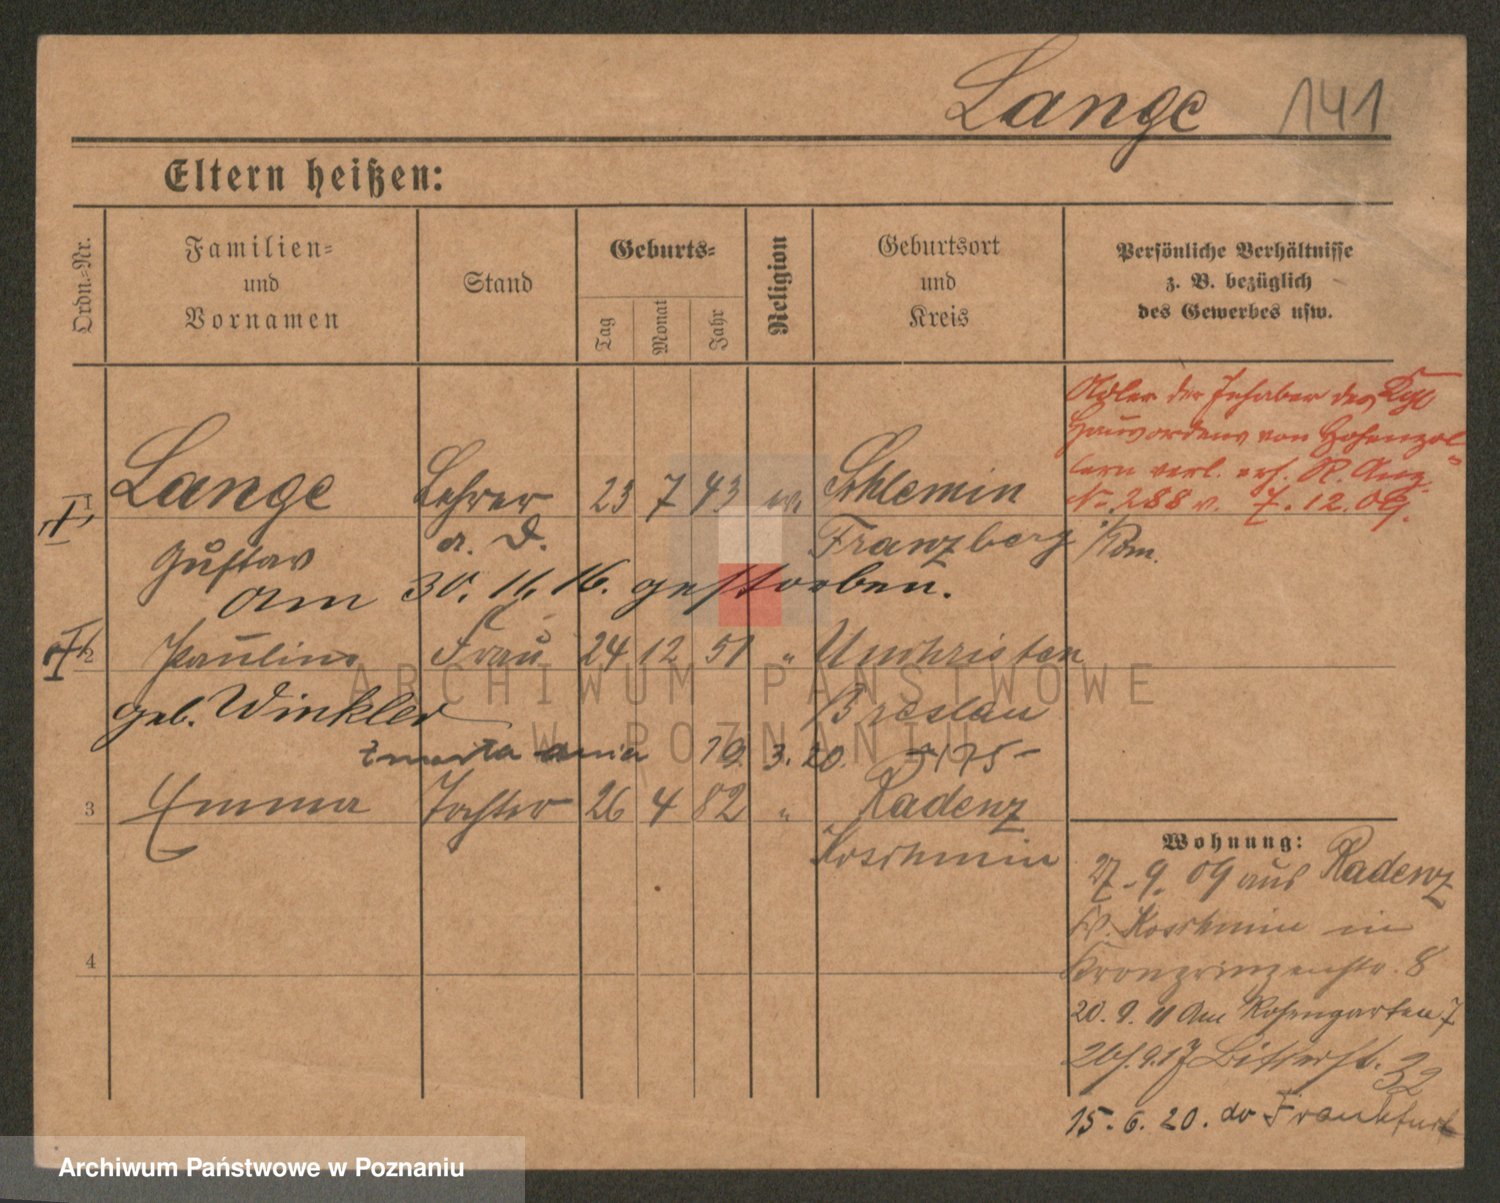 Lange 141
Eltern heißen:
Ordn.=Nr.
Familien=
und
Vornamen
Stand
Geburts=
Tag
Monat
Jahr
Religion
Geburtsort
und
Kreis
Persönliche Verhältnisse
z. B. bezüglich
des Gewerbes usw.
Adler der Inhaber des Kgl
Hausordens von Hohenzol=
lern verl. R. Anz.
No 288 v. 7. 12. 09.
1 Lange Lehrer 23 7 43 ev. Schlemin
Gustav a. D. Franzberg /Pom.
Am 30. 11. 16. gestorben.
2 Pauline Frau 24 12 51 " Unchristen
geb. Winkler Breslau
zmarła dnia 19. 3. 20. 175
3 Emma Tochter 26 4 82 " Radenz
Koschmin
4
Wohnung:
27. 9. 09 aus Radenz
Kr. Koschmin in
Kronprinzenstr. 8
20. 9. 11 Am Rosengarten 7
9. 17 Bitterstr. 32
15. 6. 20. do Frankfurt
ARCHIWUM PAŃSTWOWE
W POZNANIU
Archiwum Państwowe w Poznaniu